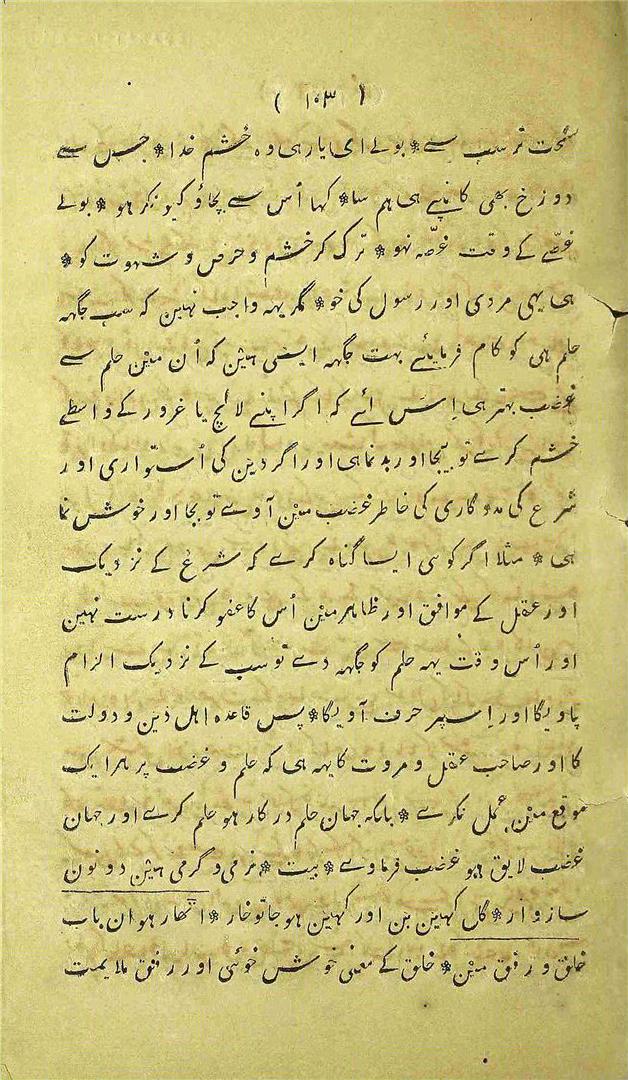 ( ۱۰۳ )
سخت تر سب سے * بولے ای یار ہی وہ خشم خدا * جس سے
دوزخ بھی کانپے ہی ہم سا * کہا اُس سے بچاؤ کیونکر ہو * بولے
غصّے کے وقت غصّہ نہو * ترک کر خشم و حرص و شہوت کو *
ہی یہی مردی اور رسول کی خو * مگر یہہ واجب نہین کہ سب جگہہ
حلم ہی کو کام فرمائے بہت جگہہ ایسی ہیٔن کہ اُن میٔن حلم سے
غضب بہتر ہی اِس لئے کہ اگر اپنے لالچ یا غرور کے واسطے
خشم کرے تو بیجا اور بدنما ہی اور اگر دین کی اُستواری اور
شرع کی مددگاری کی خاطر غضب میٔن آوے تو بجا اور خوش نما
ہی * مثلا اگر کوئی ایسا گناہ کرے کہ شرع کے نزدیک
اور عقل کے موافق اور ظاہر میٔن اُس کا عفو کرنا درست نہین
اور اُس وقت یہہ حلم کو جگہہ دے تو سب کے نزدیک الزام
پاویگا اور اِسپر حرف آویگا * پس قاعدہ اہل دین و دولت
کا اور صاحب عقل و مروت کا یہہ ہی کہ حلم و غضب پر ہر ایک
موقع میٔن عمل نکرے * بلکہ جہان حلم درکار ہو حلم کرے اور جہان
غضب لایق ہو غضب فرماوے * بیت * نرمی و گرمی ہیٔن دونون
سازوار * گل کہین بن اور کہین ہو جا تو خار * اٹھارہوان باب
خلق و رفق میٔن * خلق کے معنی خوش خوئی اور رفق ملایمت